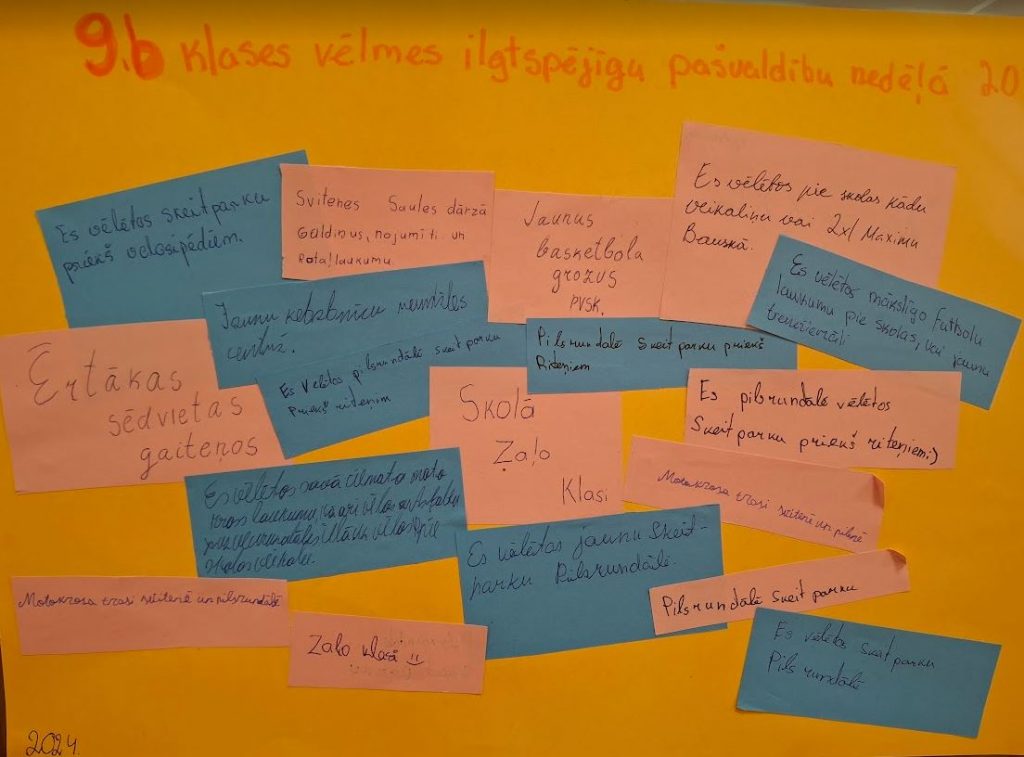 9.b klases vēlmes ilgtspējīgu pašvaldību nedēļā 20
Es vēlētos skeitparku
priekš velosipēdiem.
Svitenes Saules dārzā
Galdiņus, nojumīti un
Rotaļlaukumu.
Jaunus
basketbola
grozus
PVSK.
Es vēlētos pie skolas kādu
veikaliņu vai 2x1 Maximu
Bauskā.
Es vēlētos mākslīgo Futbolu
laukumu pie skolas, vai jaunu
trenežierzāli
Jaunu
centrs.
Es Vēlētos pilsrundālē skeit parku
Priekš riteņim
Pilsrundalē Skeit parku priekš
Riteņiem
Ērtākas
sēdvietas
gaiteņos
Skolā
Zaļo
Klasi
Es pilsrundālē vēlētos
Skeitparku priekš riteņiem:)
Motokrosa trasi svitenē un pilsrē
Es vēlētos savā moto
kros laukumu
skolas
Es vēlētos jaunu Skeit-
parku Pilsrundālē.
Motokrosa trasi svitenē un pilsrundālē
Pilsrundālē skeit parku
Zaļo klasi
Es vēlētos skeitparku
Pilsrundālē
2024.